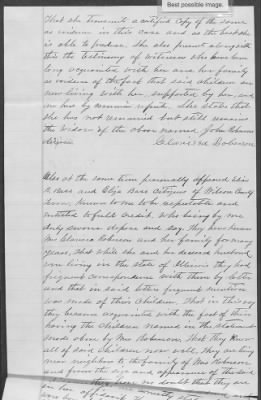 Best possible image.
That she transmits a certified copy of the same
as evidence in this case and as the best she
is able to produce. She also presents alongside
this the testimony of witnesses who have been
long acquainted with her and her family
as evidence of the fact that said children are
now living with her, supported by her, and
are her by common repute. She states that
she has not remarried but still remains
the widow of the above named John Robinson
deceased.
Clarinda Robinson
Also at the same time personally appeared
R. Bass and Eliza Bass Citizens of Wilson County
known to me to be respectable and
entitled to full credit, who being by me
duly sworn depose and say they have known
Mrs Clarinda Robinson and her family for many
years, that while she and her deceased husband
were living in the state of Illinois they had
frequent correspondence with them by letter
and that in said letters frequent mention
was made of their children. That in this way
they became acquainted with the fact of their
having the children named in the statement
made above by Mrs Robinson. That they know
all of said children now well, they being
near neighbors to the family of Mrs Robinson,
and from the size and appearance of the said
they have no doubt that they are